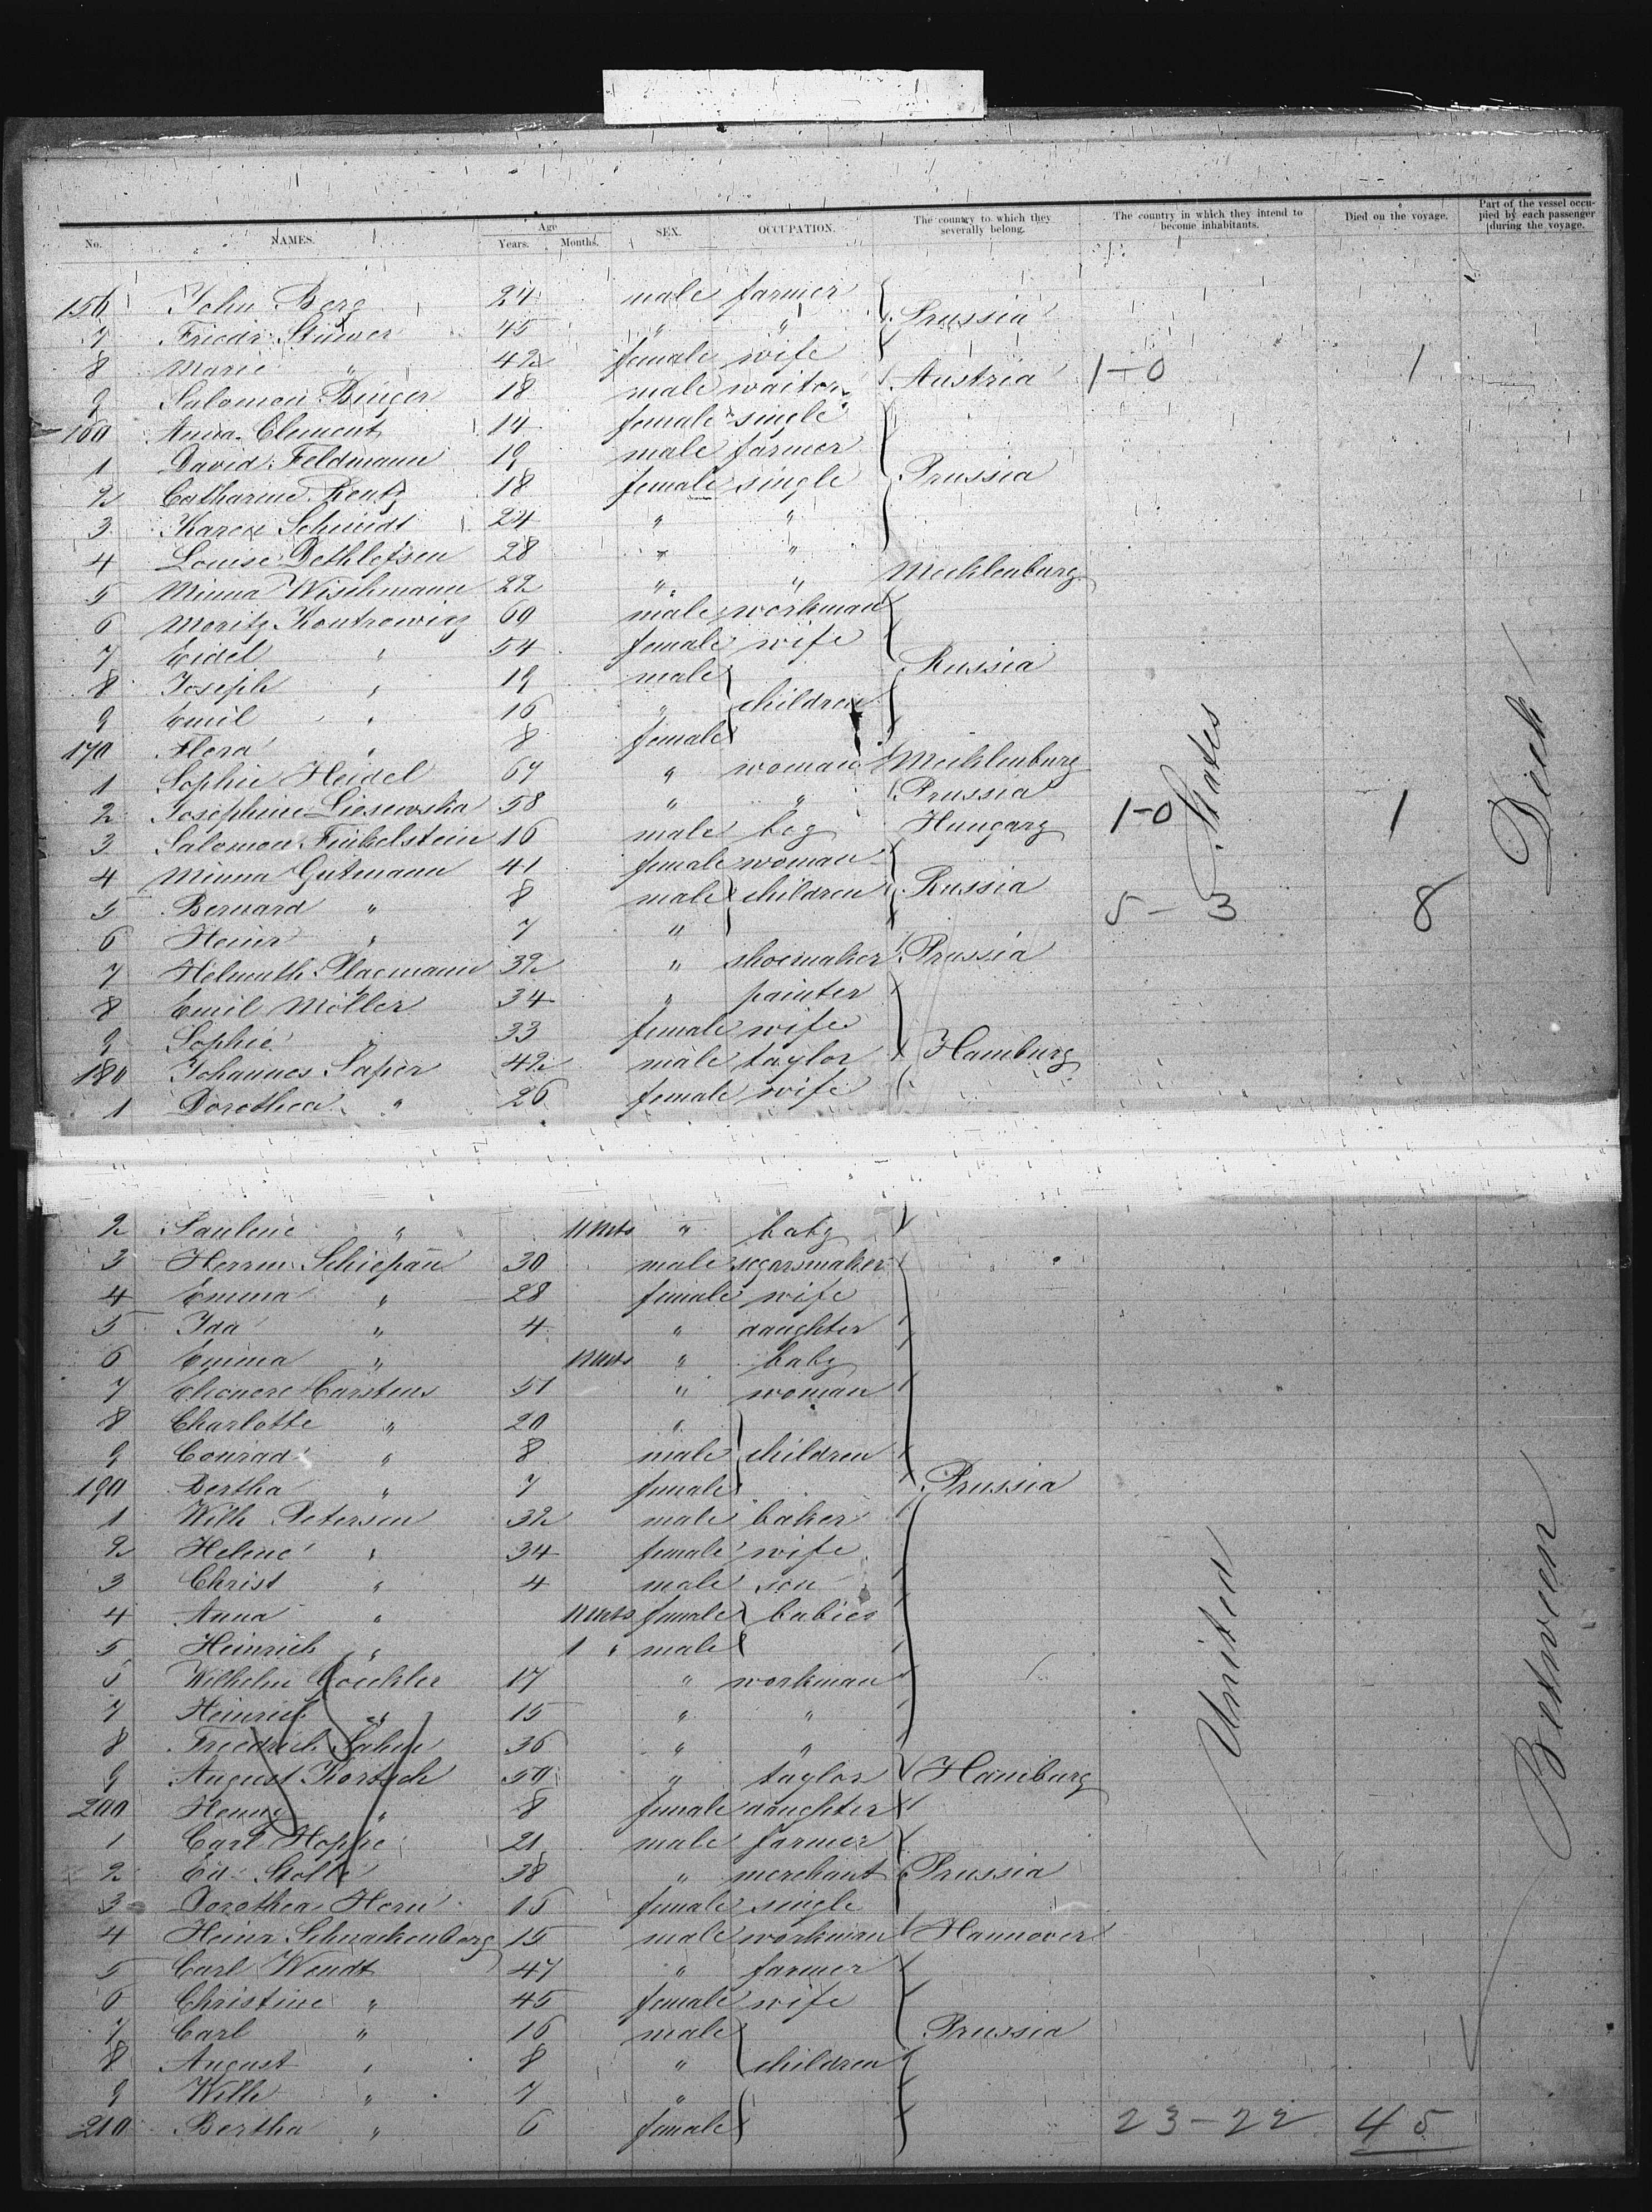 No. NAMES. Age Years. Months. SEX. OCCUPATION. The country to which they severally belong. The country in which they intend to become inhabitants. Died on the voyage. Part of the vessel occupied by each passenger during the voyage.
156 John Berg 24 male farmer
7 Friedr. Stüwer 45 " " Prussia
8 Marie " 42 female wife
9 Salomon Binger 18 male waiter Austria 1-0 1
160 Anna Clement 14 female single
1 David Feldmann 19 male farmer
2 Catharine Rentz 18 female single Prussia
3 Karen Schmidt 24 " "
4 Louise Dethlefsen 28 " "
5 Minna Wischmann 22 " " Mecklenburg
6 Moritz Kontrowicz 60 male workman
7 Eidel " 54 female wife
8 Joseph " 19 male Russia
9 Emil " 16 " children
170 Flora " 8 female
1 Sophie Heidel 64 " woman Mecklenburg
2 Josephine Liesewska 58 " " Prussia
3 Salomon Finkelstein 16 male boy Hungary 1-0 1
4 Minna Gutmann 41 female woman
5 Bernard " 8 male children Russia
6 Heinr " 7 " 5-3 8
7 Helmuth Plagmann 32 " shoemaker Prussia
8 Emil Möller 34 " painter
9 Sophie " 33 female wife
180 Johannes Saper 42 male taylor Hamburg
1 Dorothea " 26 female wife
2 Pauline " 11 mts " baby
3 Herrm. Schiepan 30 male segarsmaker
4 Emma " 28 female wife
5 Ida " 4 " daughter
6 Emma " 11 mts " baby
7 Eleonore Carstens 51 " woman
8 Charlotte " 20 "
9 Conrad " 8 male children
190 Bertha " 7 female Prussia
1 Wilh Petersen 32 male baker
2 Helene " 34 female wife
3 Christ " 4 male son
4 Anna " 11 mts female babies
5 Heinrich " 1 " male
6 Wilhelm Goeckler 17 " workman
7 Heinrich " 15 " "
8 Friedrich Sahm 36 " "
9 August Korsch 50 " taylor Hamburg
200 Henny " 8 female daughter
1 Carl Hoppe 21 male farmer
2 Ed. Stolle 38 " merchant Prussia
3 Dorothea Horn 15 female single
4 Heinr Schnackenberg 15 male workman Hannover
5 Carl Wendt 47 " farmer
6 Christine " 45 female wife
7 Carl " 16 male Prussia
8 August " 8 " children
9 Wilh " 7 "
210 Bertha " 6 female 23-22 45
United States
Between Deck